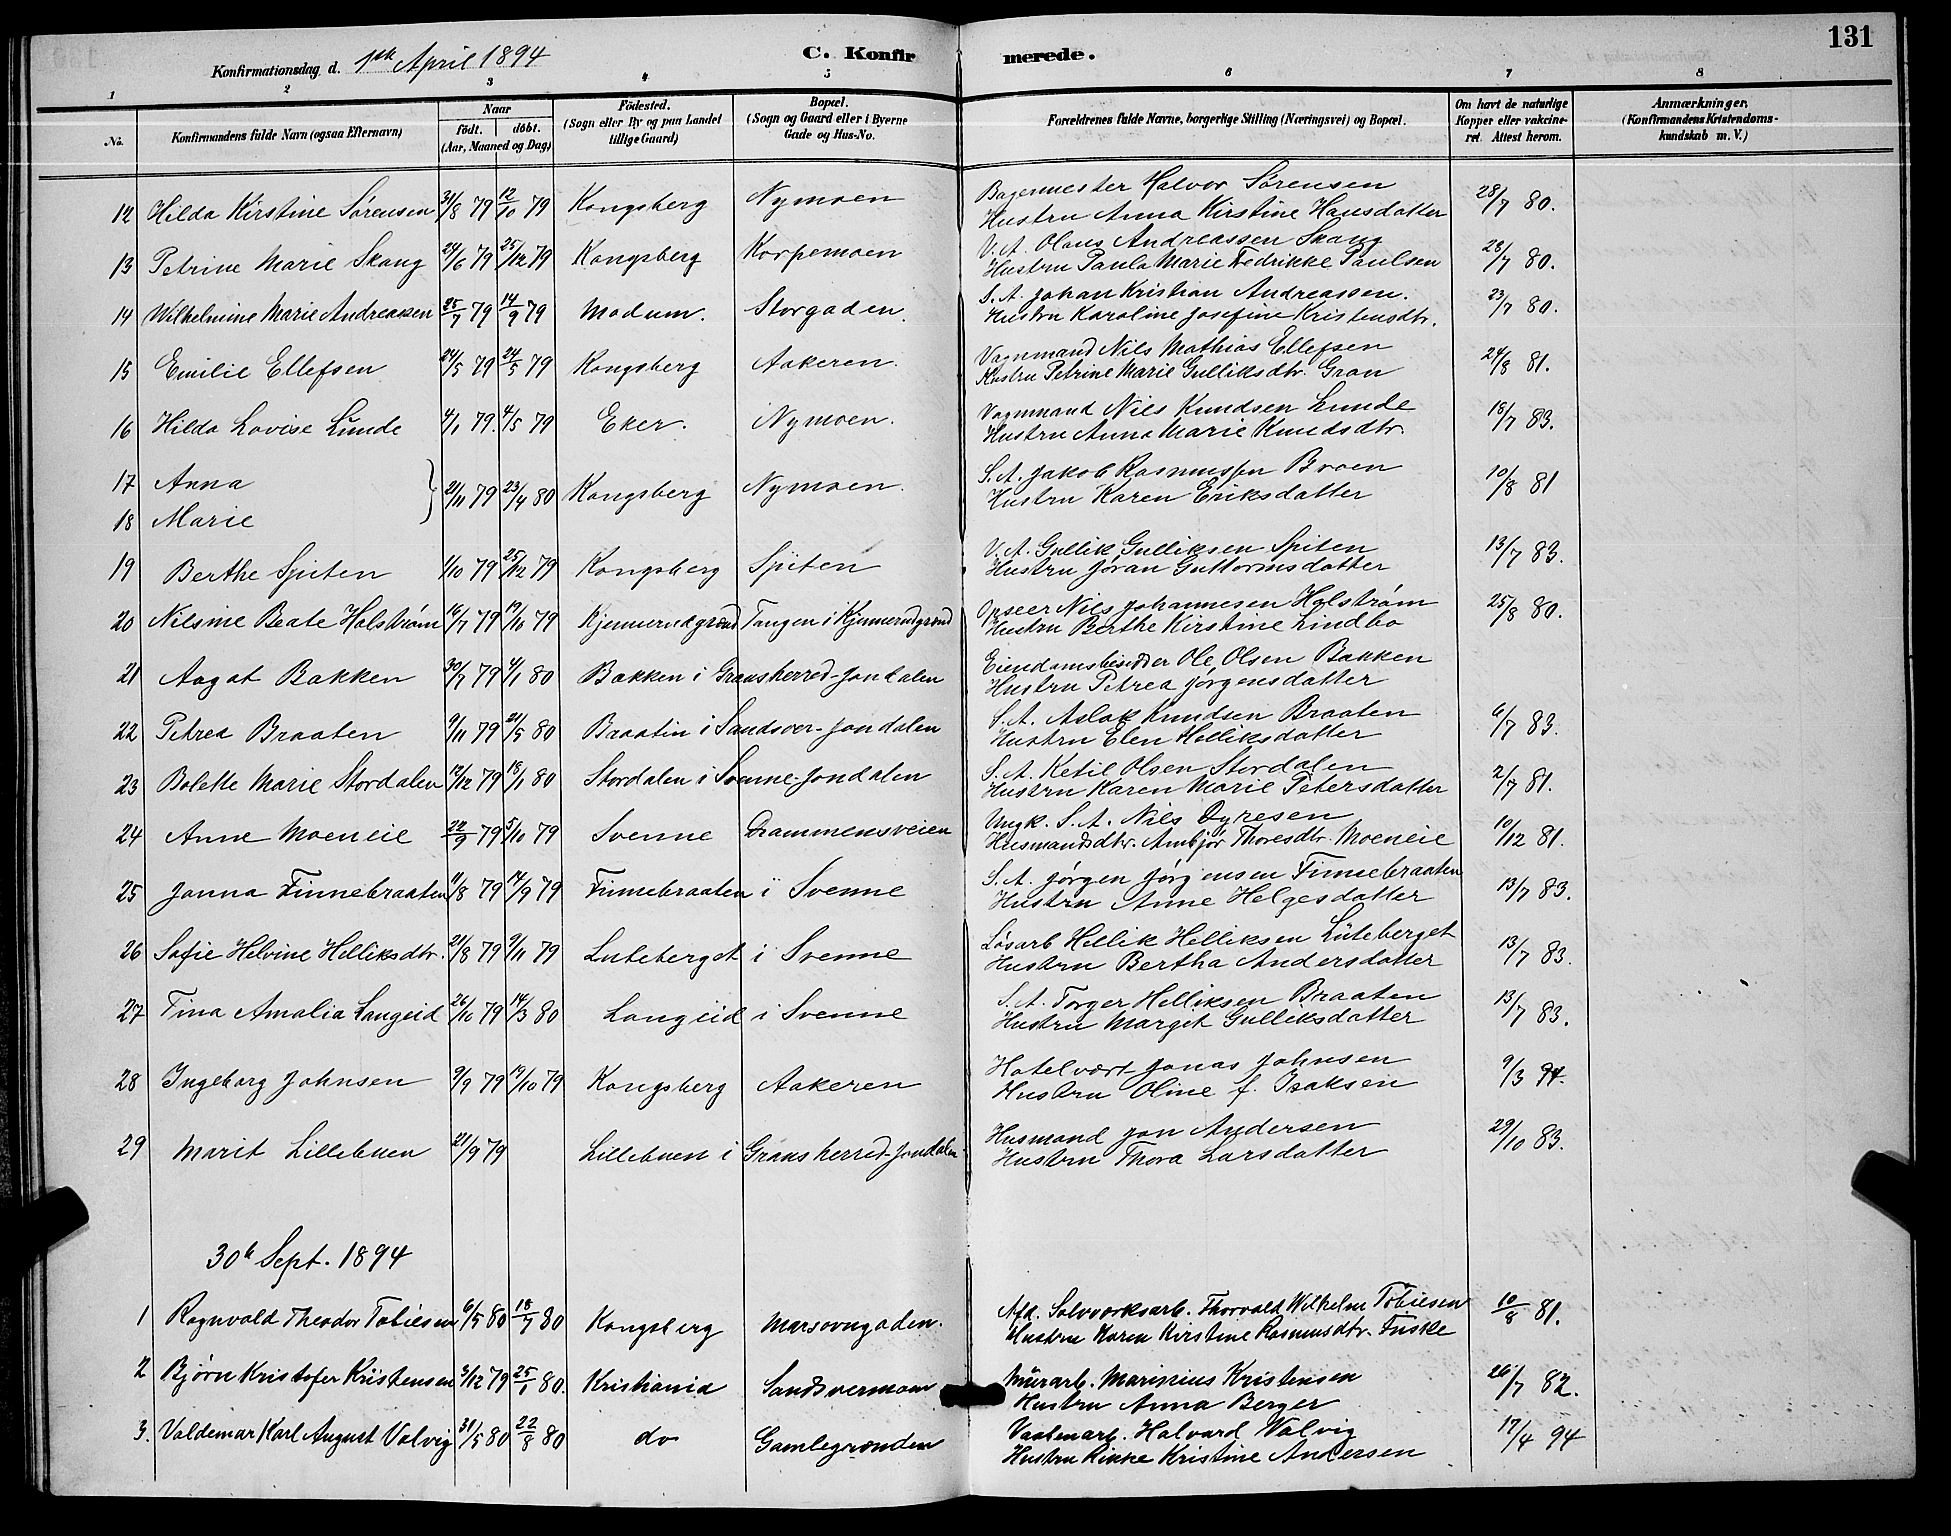 131
Konfirmationsdag d. 1ste April 1894
C. Konfirmerede.
1 2 3 4 5 6 7 8
No. Konfirmandens fulde Navn (ogsaa Efternavn) Naar födt. döbt. (Aar, Maaned og Dag) Födested. (Sogn eller By og paa Landet tillige Gaard) Bopæl. (Sogn og Gaard eller i Byerne Gade og Hus-No. Forældrenes fulde Navne, borgerlige Stilling (Næringsvei) og Bopæl. Om havt de naturlige Kopper eller vakcineret. Attest herom. Anmærkninger. (Konfirmandens Kristendomskundskab m. V.)
12 Hilda Kirstine Sørensen 31/8 79 12/10 79 Kongsberg Nymoen Bagermester Halvor Sørensen 28/7 80.
Hustru Anna Kirstine Hansdatter
13 Petrine Marie Skaug 24/6 79 25/12 79 Kongsberg Korpemoen V. A. Olaus Andreassen Skaug 28/7 80.
Hustru Paula Marie Fredrikke Paulsen
14 Wilhelmine Marie Andreassen 25/7 79 14/9 79 Modum. Storgaden. S. A. Johan Kristian Andreassen. 23/7 80.
Hustru Karoline Josefine Kristensdtr.
15 Emilie Ellefsen 24/5 79 24/5 79 Kongsberg Aakeren. Vognmand Nils Mathias Ellefsen 24/8 81.
Hustru Petrine Marie Gulliksdtr. Gran
16 Hilda Lovise Lunde 4/1 79. 4/5 79 Eker. Nymoen. Vognmand Nils Knudsen Lunde 18/7 83.
Hustru Anna Marie Knudsdtr.
17 Anna } 21/11 79 23/4 80 Kongsberg Nymoen. S. A. Jakob Rasmussen Broen 10/8 81
18 Marie Hustru Karen Eriksdatter
19 Berthe Spiten 1/10 79 25/12 79 Kongsberg Spiten V. A. Gullik Gulliksen Spiten 13/7 83.
Hustru Jöran Guttormsdatter
20 Nilsine Beate Holstrøm 16/7 79 19/10 79 Kjennerudgrend Tangen i Kjennerudgrend Opseer Nils Johannesen Holstrøm 25/8 80.
Hustru Berthe Kirstine Lindbo
21 Aagot Bakken 30/7 79 4/1 80 Bakken i Gransherred-Jondalen Eiendomsbesidder Ole Olsen Bakken
Hustru Petrea Jørgensdatter
22 Petrea Braaten 9/11 79 21/5 80 Braatin i Sandsver-Jondalen S. A. Aslak Knudsen Braaten 6/7 83.
Hustru Elen Helliksdatter
23 Bolette Marie Stordalen 12/12 79 18/1 80 Stordalen i Svenne-Jondalen S. A. Ketil Olsen Stordalen 2/7 81.
Hustru Karen Marie Petersdatter
24 Anne Moeneie 22/9 79 5/10 79 Svenne Drammensveien Ungk. S. A. Nils Dyresen 10/12 81.
Husmandsdtr. Ambjör Thoresdtr. Moeneie
25 Janna Finnebraaten 11/8 79 14/9 79 Finnebraaten i Svenne S. A. Jørgen Jørgensen Finnebraaten 13/7 83.
Hustru Anne Helgesdatter
26 Sofie Helvine Helliksdtr. 21/8 79 9/11 79 Luteberget i Svenne Løsarb Hellik Helliksen Luteberget 13/7 83.
Hustru Bertha Andersdatter
27 Tina Amalia Langeid 26/10 79 14/3 80 Langeid i Svenne S. A. Torger Helliksen Braaten 13/7 83.
Hustru Marget Gulliksdatter
28 Ingeborg Johnsen 9/9 79 19/10 79 Kongsberg Aakeren Hotelvært Jonas Johnsen 9/3 94.
Hustru Oline f. Isaksen
29 Marit Lillebuen 21/9 79 Lillebuen i Gransherred-Jondalen Husmand Jon Andersen 29/10 83.
Hustru Thora Larsdatter
30te Sept. 1894
1 Ragnvald Theodor Tobiesen 6/5 80 18/7 80 Kongsberg Marsovngaden. Afd. Sølvværksarb. Thorvald Wilhelm Tobiesen 10/8 81.
Hustru Karen Kirstine Rasmusdtr. Fiiske
2 Bjørn Kristofer Kristensen 3/12 79 25/1 80. Kristiania Sandsvermoen Murarb. Marinius Kristensen 26/7 82.
Hustru Anna Berger
3. Valdemar Karl August Valvig 31/5 80 22/8 80 do Gamlegrenden Vaabenarb. Halvard Walvig 17/4 94
Hustru Rikke Kristine Andersen